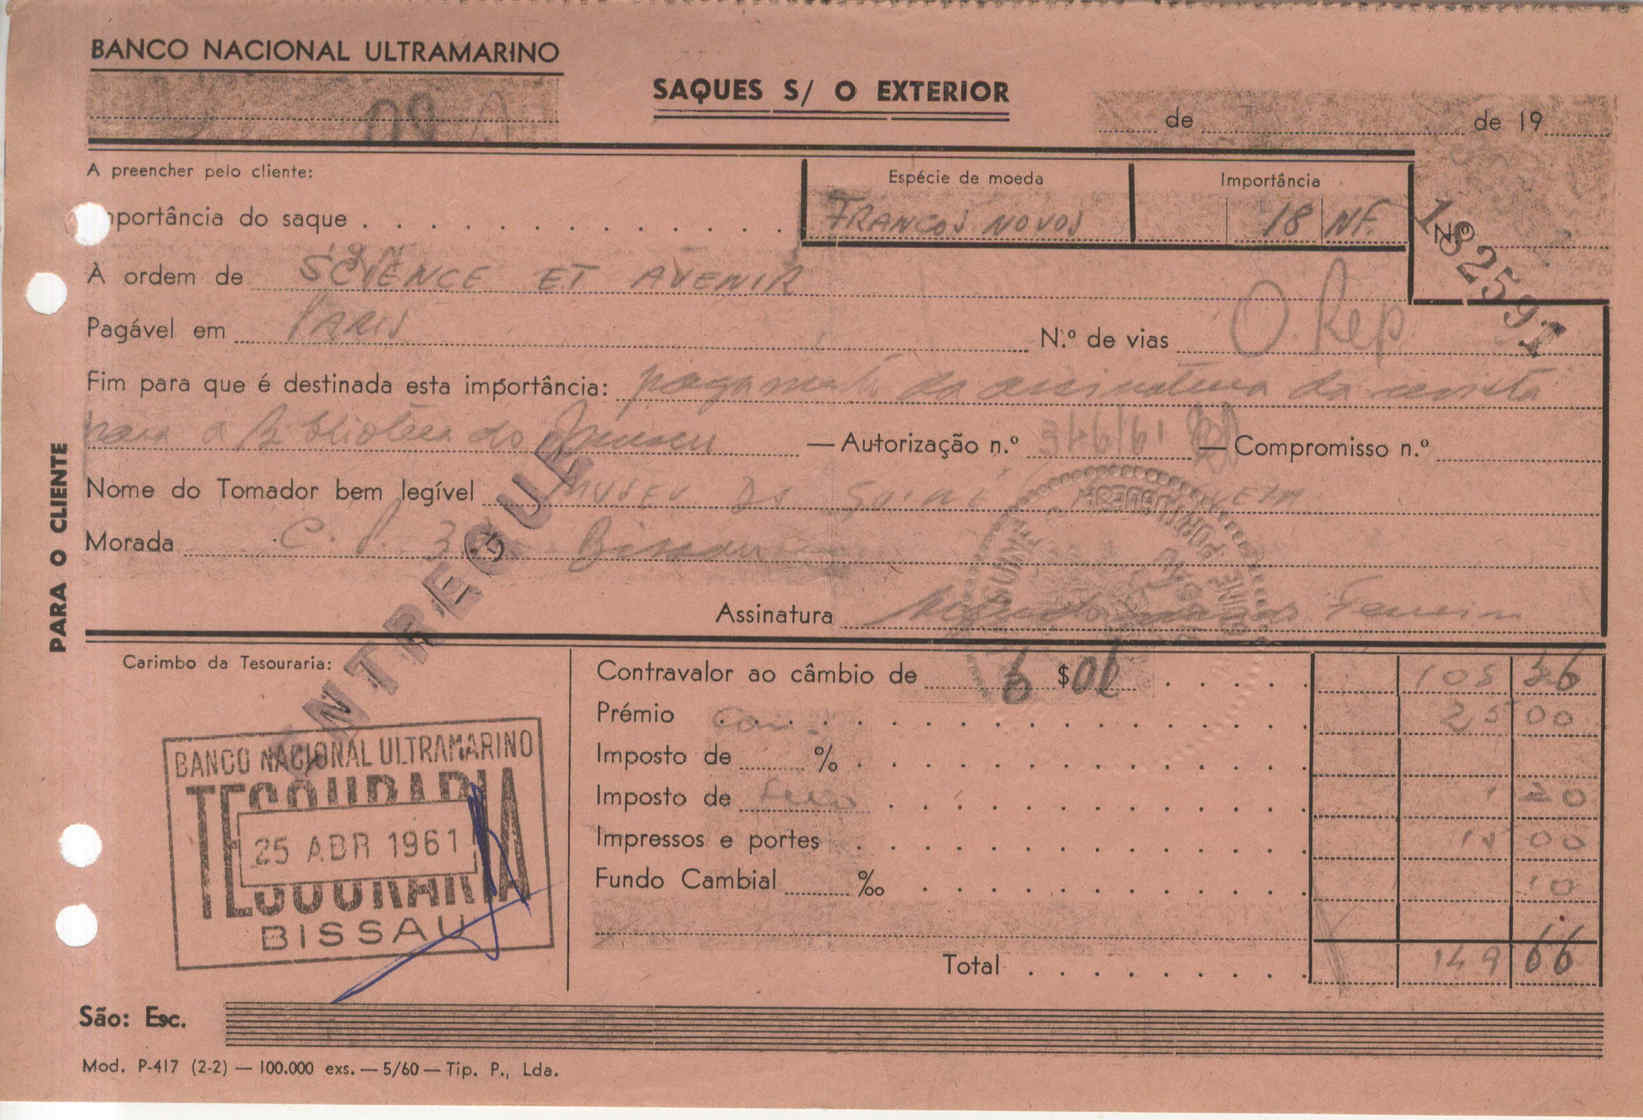 BANCO NACIONAL ULTRAMARINO
SAQUES S/ O EXTERIOR
de de 19
A preencher pelo cliente:
Espécie de moeda Importância
portância do saque FRANCOS NOVOS 18 NF. Nº
182591
À ordem de SCIENCE ET AVENIR
Pagável em PARIS N.º de vias O. Rep.
Fim para que é destinada esta importância: pagamento da assinatura da revista
para a Biblioteca do Museu — Autorização n.º — Compromisso n.º
Nome do Tomador bem legível MUSEU DA GUINÉ
Morada C. P. Bissau
ENTREGUE
Assinatura Ferreira
PARA O CLIENTE
Carimbo da Tesouraria:
Contravalor ao câmbio de 6 $
Prémio 25 00
Imposto de %
Imposto de Selo 20
Impressos e portes 15 00
Fundo Cambial ‰ 10
Total 149 66
BANCO NACIONAL ULTRAMARINO
TESOURARIA
25 ABR 1961
TESOURARIA
BISSAU
São: Esc.
Mod. P-417 (2-2) — 100.000 exs. — 5/60 — Tip. P., Lda.